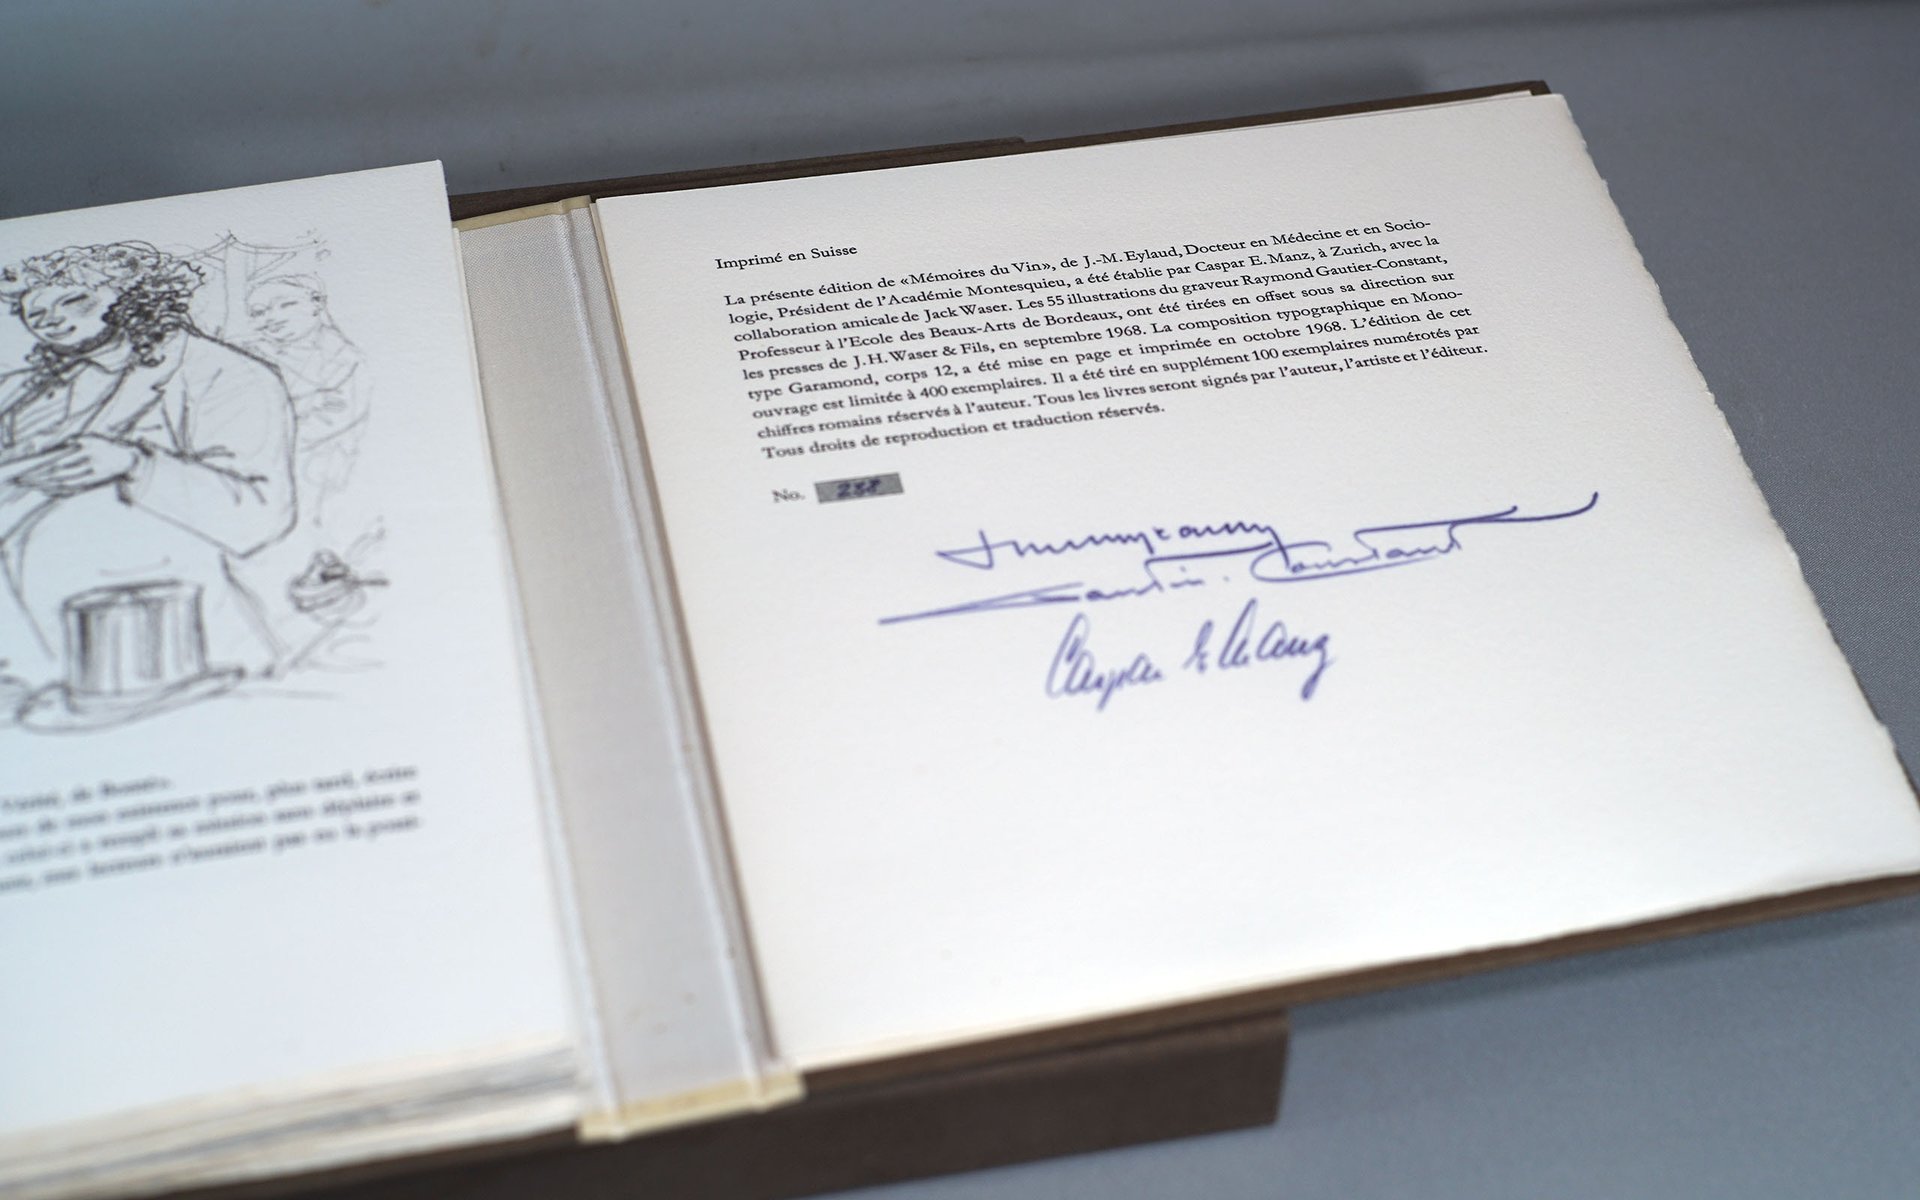 Vertu, de Rome».
pour, plus tard, écrire
se
la porte
Imprimé en Suisse
La présente édition de «Mémoires du Vin», de J.-M. Eylaud, Docteur en Médecine et en Socio-
logie, Président de l'Académie Montesquieu, a été établie par Caspar E. Manz, à Zurich, avec la
collaboration amicale de Jack Waser. Les 55 illustrations du graveur Raymond Gautier-Constant,
Professeur à l'Ecole des Beaux-Arts de Bordeaux, ont été tirées en offset sous sa direction sur
les presses de J.H. Waser & Fils, en septembre 1968. La composition typographique en Mono-
type Garamond, corps 12, a été mise en page et imprimée en octobre 1968. L'édition de cet
ouvrage est limitée à 400 exemplaires. Il a été tiré en supplément 100 exemplaires numérotés par
chiffres romains réservés à l'auteur. Tous les livres seront signés par l'auteur, l'artiste et l'éditeur.
Tous droits de reproduction et traduction réservés.
No.
Gautier-Constant
Caspar E Manz